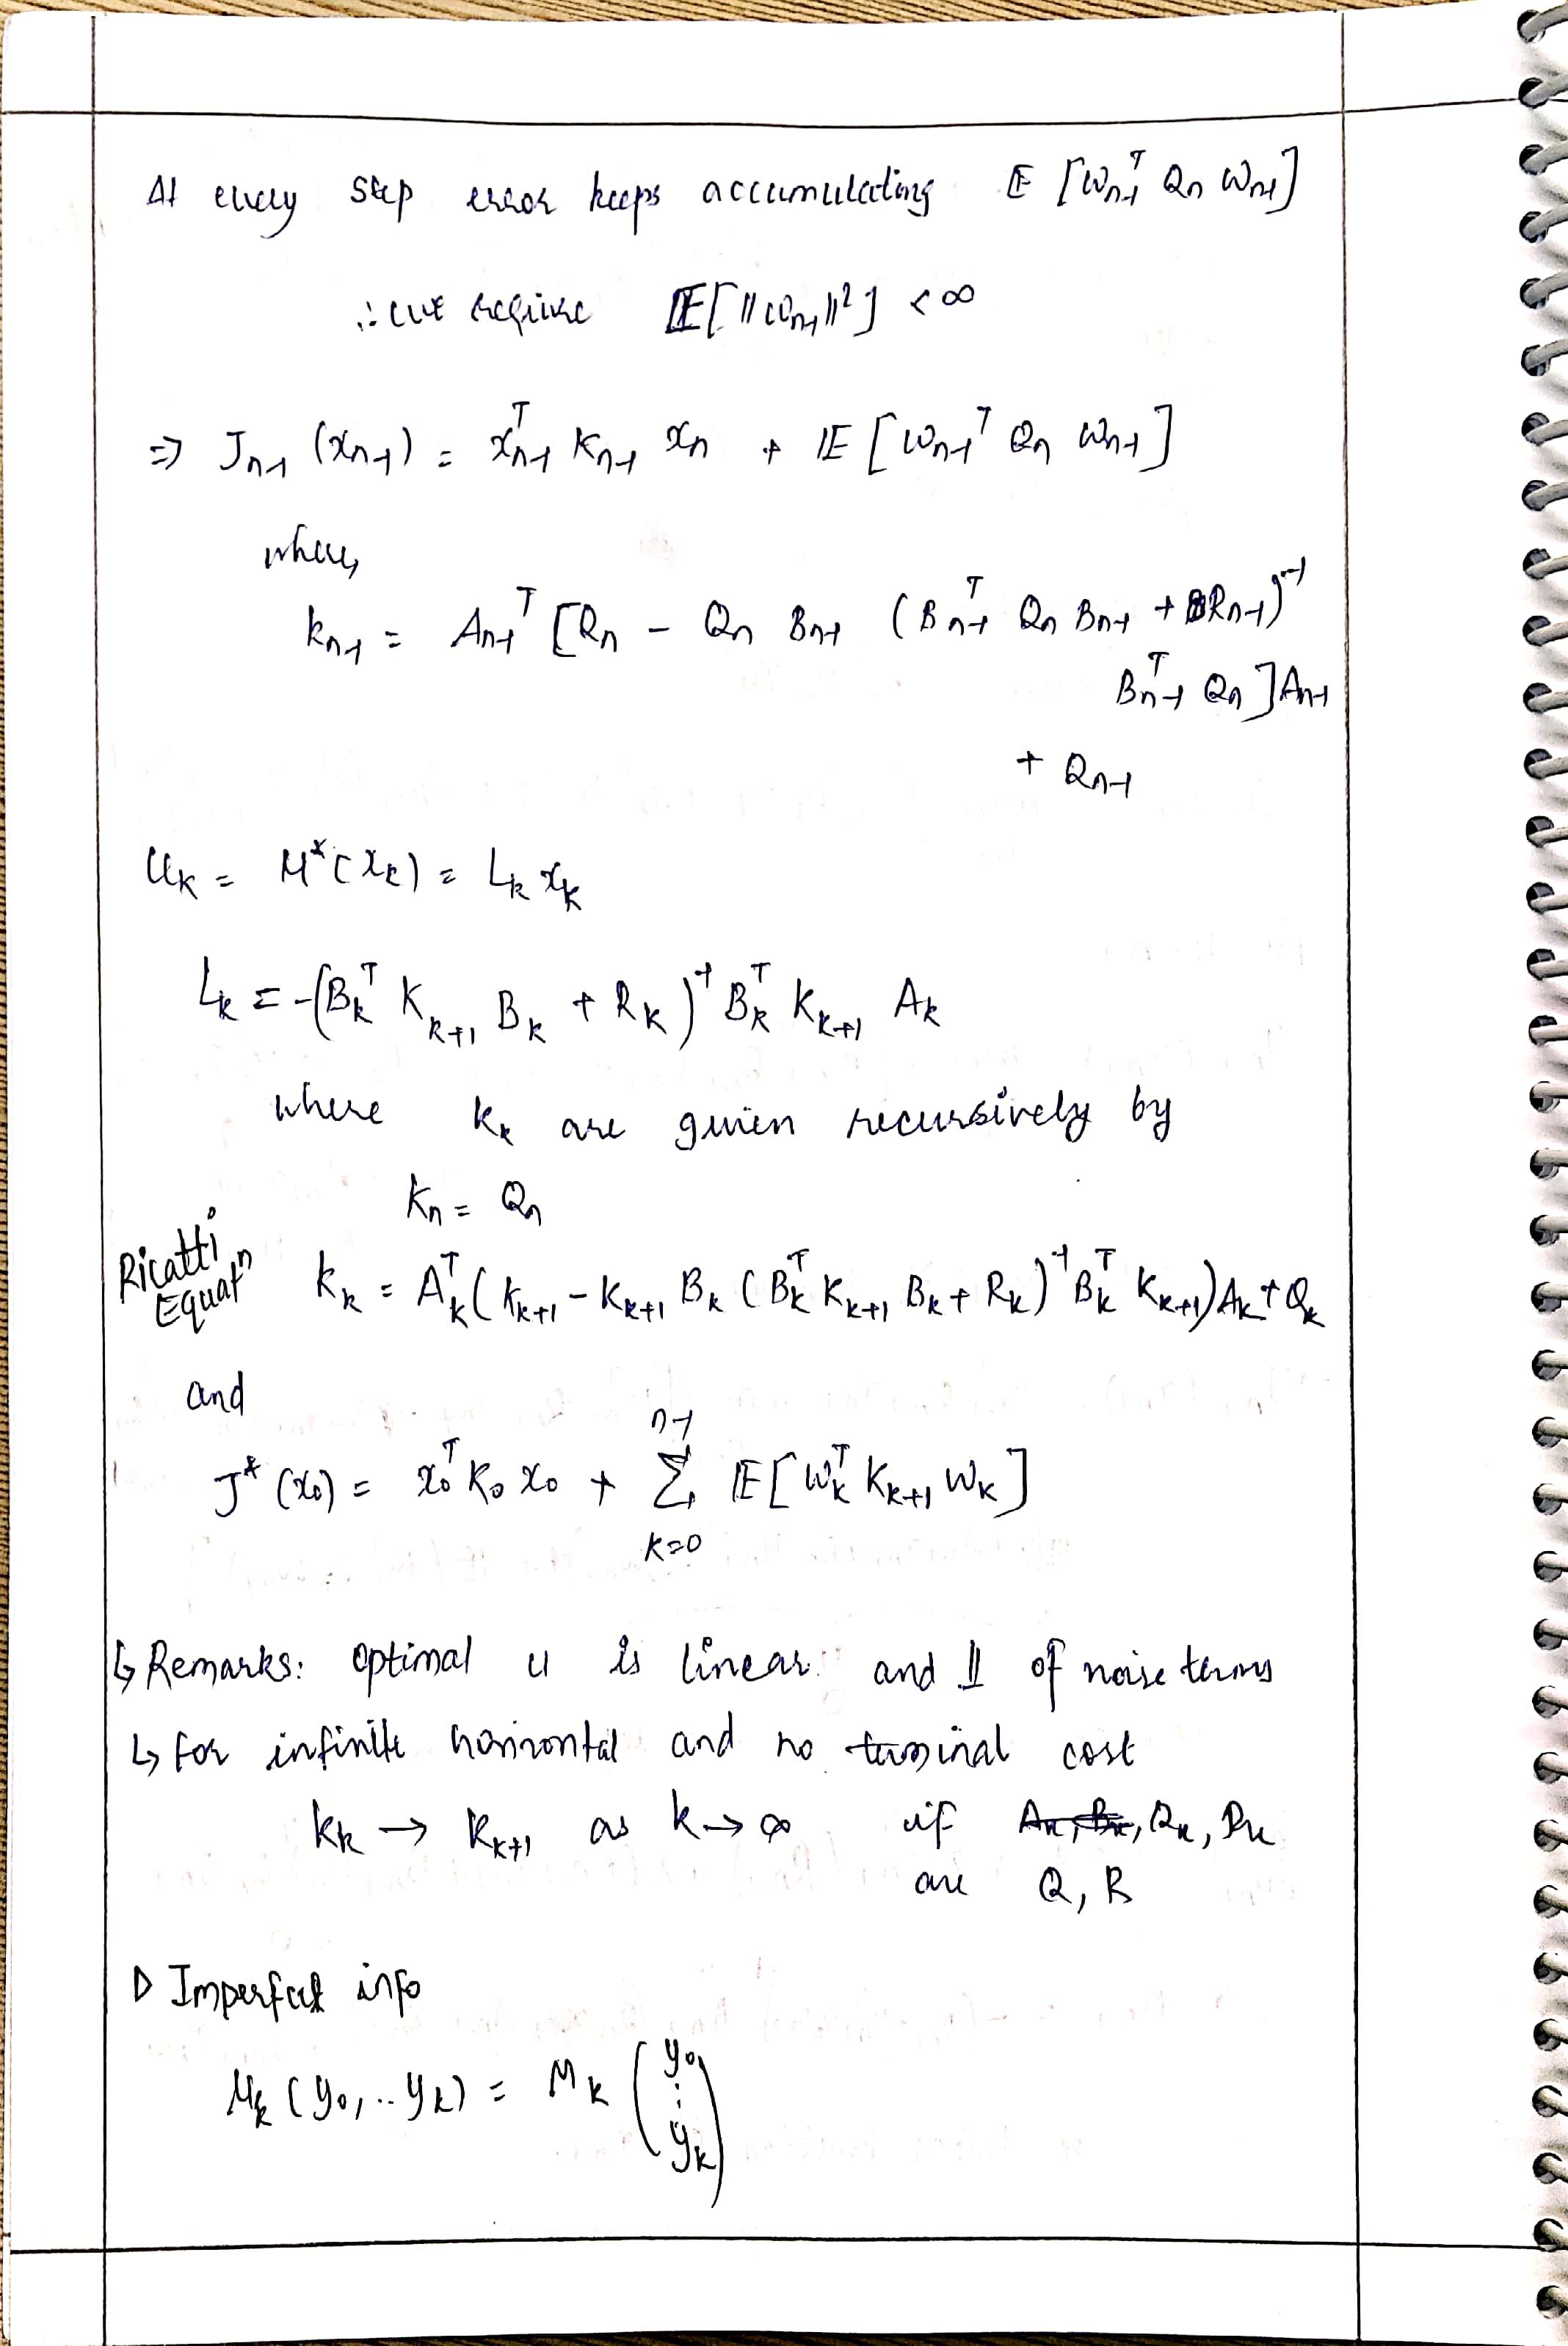 At every step error keeps accumulating 𝔼 [w_{n-1}^T Q_n w_{n-1}]
∴ we require 𝔼[||w_{n-1}||²] < ∞
⇒ J_{n-1} (x_{n-1}) = x_{n-1}^T K_{n-1} x_n + 𝔼 [w_{n-1}^T Q_n w_{n-1}]
where,
k_{n-1} = A_{n-1}^T [Q_n - Q_n B_{n-1} (B_{n-1}^T Q_n B_{n-1} + R_{n-1})^{-1}
B_{n-1}^T Q_n ] A_{n-1}
+ Q_{n-1}
u_k = μ*(x_k) = L_k x_k
L_k = -(B_k^T K_{k+1} B_k + R_k)^{-1} B_k^T K_{k+1} A_k
where k_k are given recursively by
K_n = Q_n
Ricatti
Equatⁿ k_k = A_k^T (K_{k+1} - K_{k+1} B_k (B_k^T K_{k+1} B_k + R_k)^{-1} B_k^T K_{k+1}) A_k + Q_k
and
J* (x_0) = x_0^T K_0 x_0 + Σ_{k=0}^{n-1} 𝔼 [w_k^T K_{k+1} w_k]
↳ Remarks: optimal u is linear and ⫫ of noise terms
↳ for infinite horizontal and no terminal cost
k_k → K_{k+1} as k → ∞ if Q_k, R_k
are Q, R
▷ Imperfect info
μ_k (y_0, .. y_k) = M_k (y_0 ⋮ y_k)